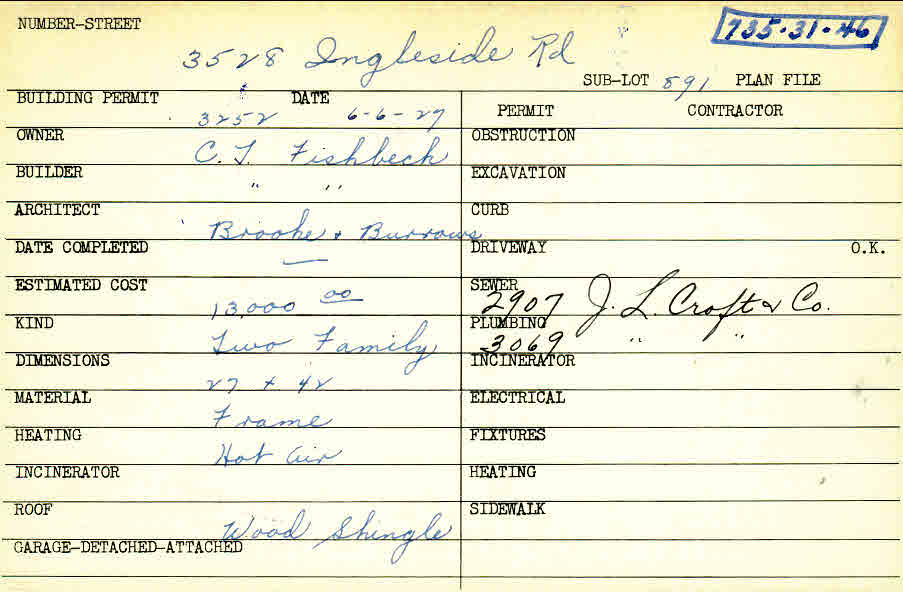 NUMBER-STREET
735-31-46
3528 Ingleside Rd
SUB-LOT 591 PLAN FILE
BUILDING PERMIT DATE
3252 6-6-27
PERMIT CONTRACTOR
OWNER
C. T. Fishbech
OBSTRUCTION
BUILDER
" "
EXCAVATION
ARCHITECT
Brooke & Burrows
CURB
DATE COMPLETED
—
DRIVEWAY O.K.
ESTIMATED COST
13,000 00
SEWER
2907 J. L. Croft & Co.
KIND
Two Family
PLUMBING
3069 " "
DIMENSIONS
27 + 42
INCINERATOR
MATERIAL
Frame
ELECTRICAL
HEATING
Hot Air
FIXTURES
INCINERATOR
HEATING
ROOF
Wood Shingle
SIDEWALK
GARAGE-DETACHED-ATTACHED